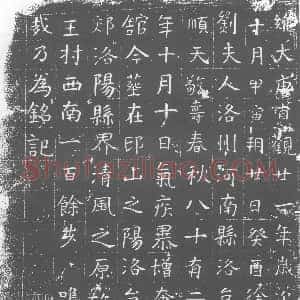 維大唐貞觀廿一年歲
十月甲寅朔廿日癸酉
劉夫人洛州河南縣洛
順天敬尋春秋八十有二
年十月十日氣疾暴增奄
舘今葬在邙山之陽洛
郊洛陽縣界清風之原
王村西南一百餘步鳴
哉乃為銘記
shufaziliao.com